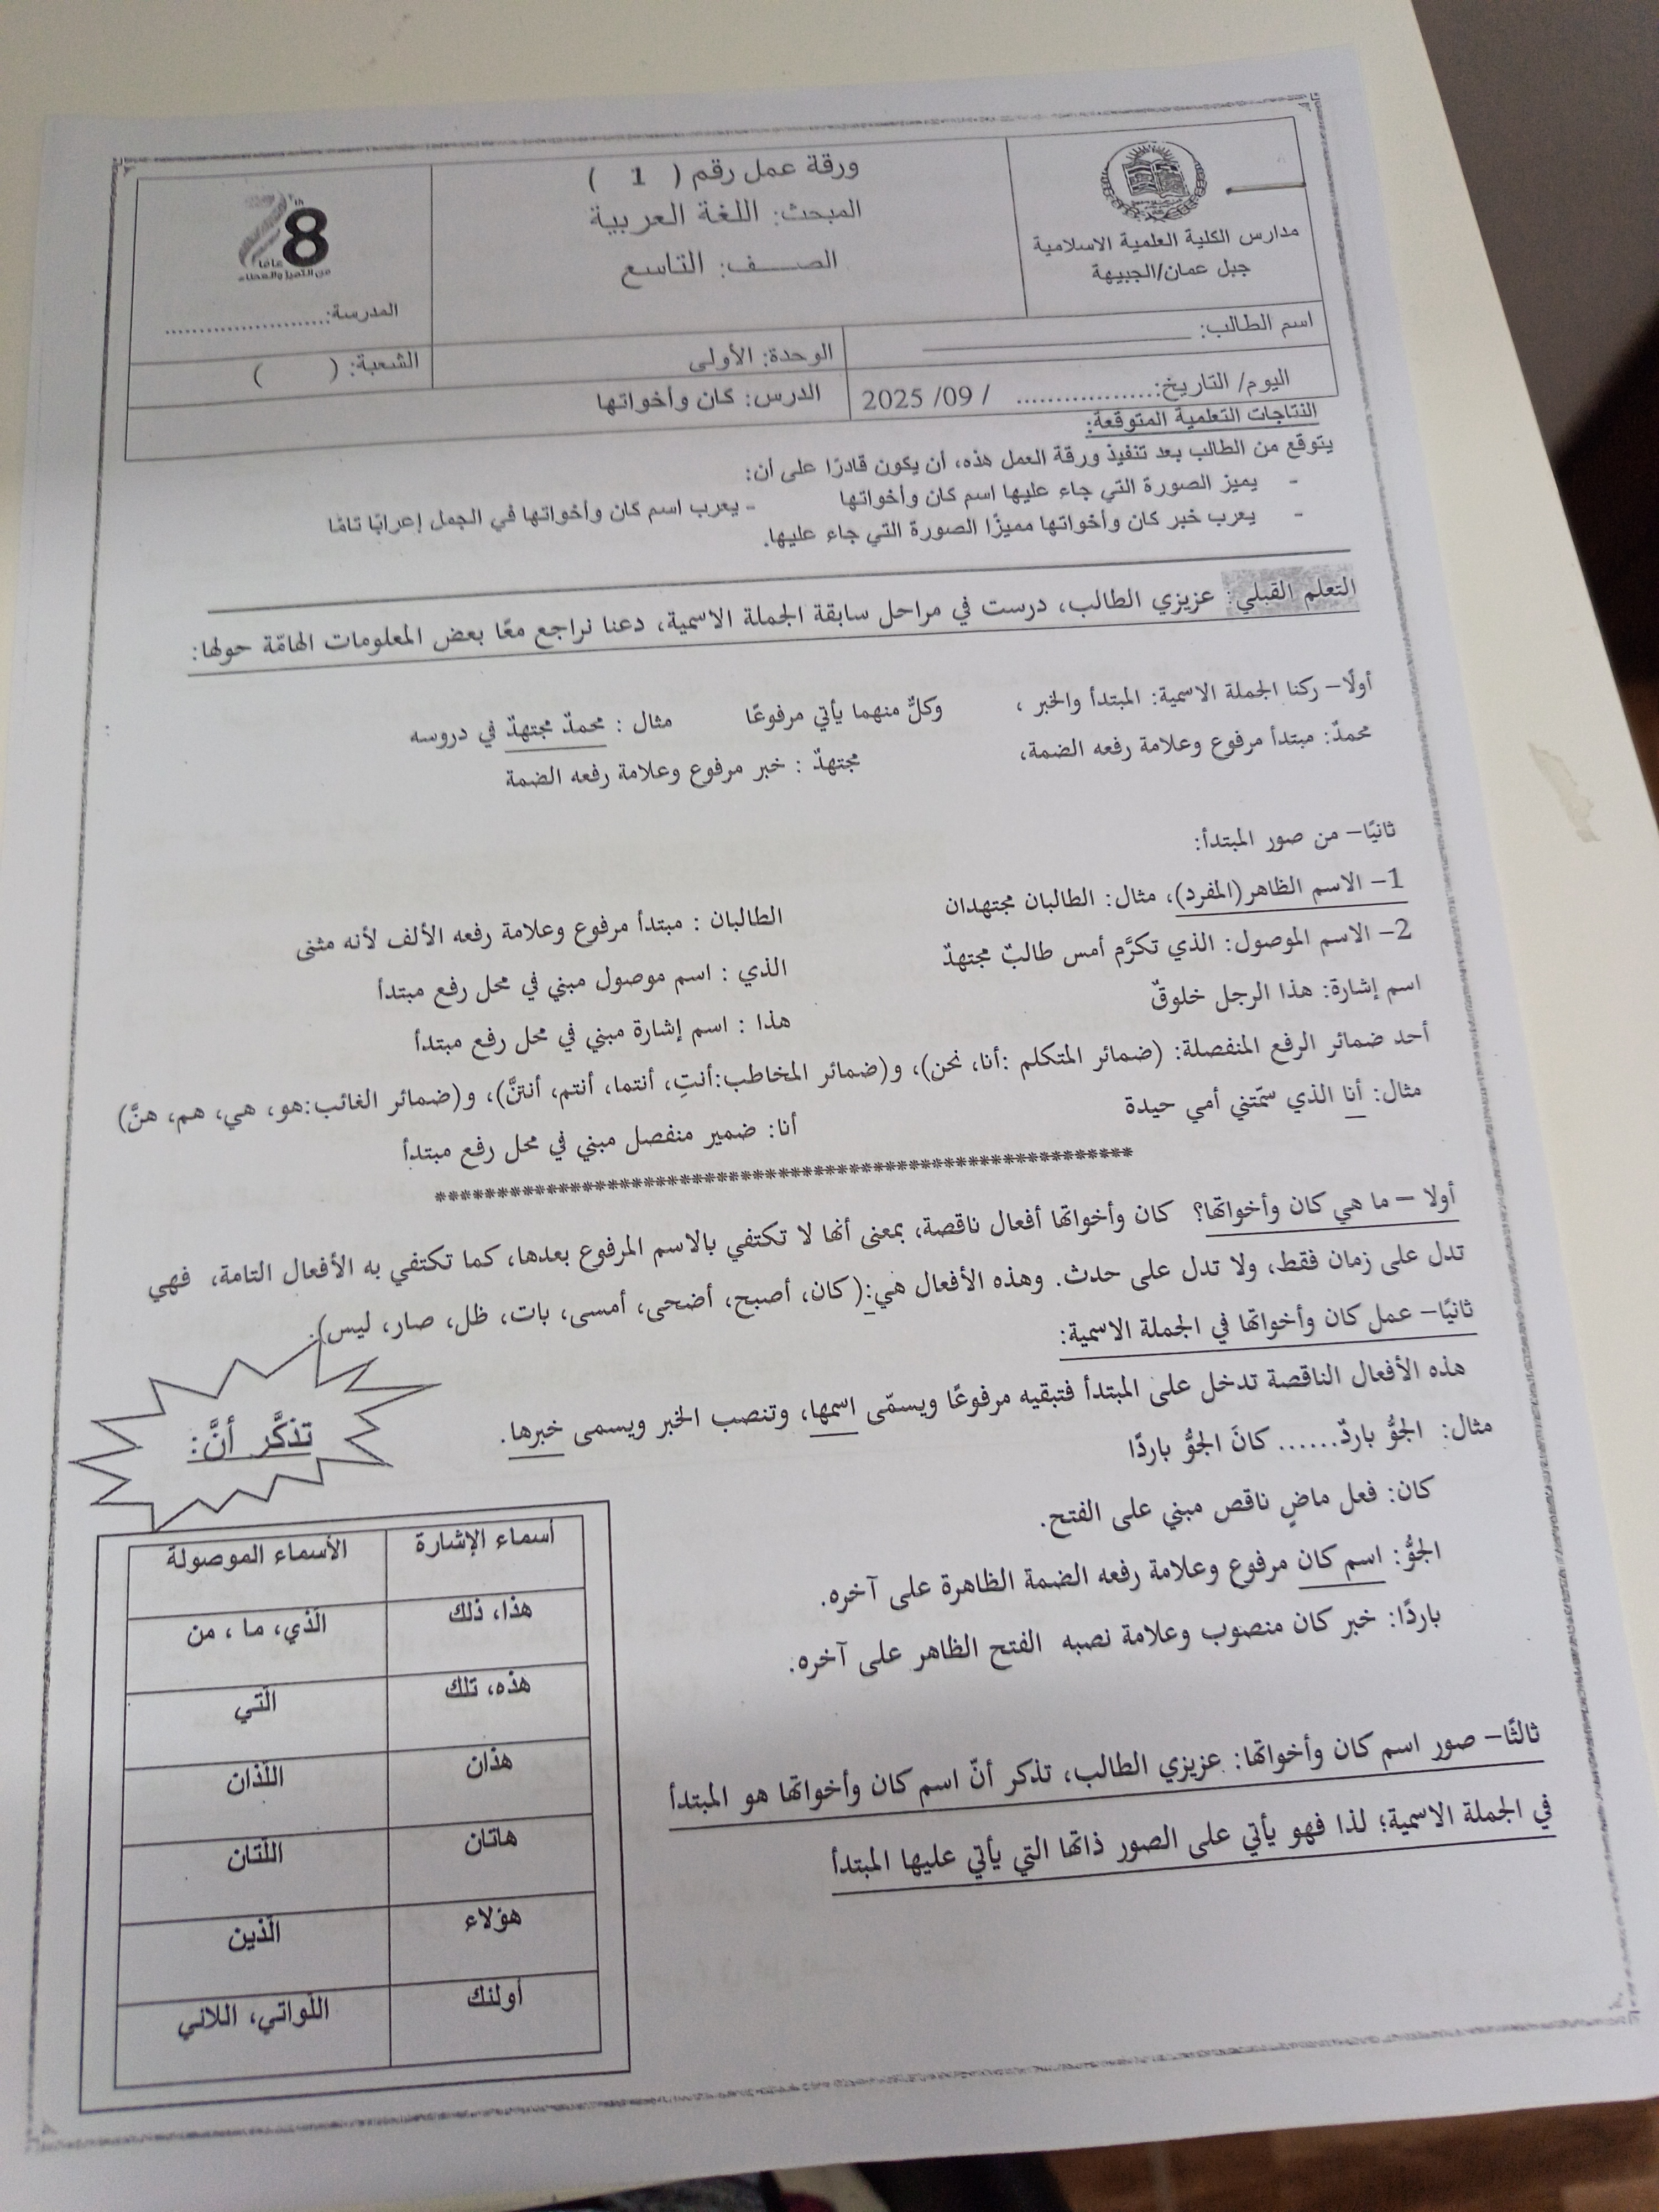 مدارس الكلية العلمية الاسلامية
جبل عمان/الجبيهة
ورقة عمل رقم ( 1 )
المبحث: اللغة العربية
الصــــف: التاسع
8 th
عاما
من التميز والعطاء
المدرسة:........................
اسم الطالب: ____________________
الوحدة: الأولى
الشعبة: ( )
اليوم/ التاريخ:................... / 09/ 2025
الدرس: كان وأخواتها
النتاجات التعلمية المتوقعة:
يتوقع من الطالب بعد تنفيذ ورقة العمل هذه، أن يكون قادرًا على أن:
- يميز الصورة التي جاء عليها اسم كان وأخواتها - يعرب اسم كان وأخواتها في الجمل إعرابًا تامًا
- يعرب خبر كان وأخواتها مميزًا الصورة التي جاء عليها.
التعلم القبلي: عزيزي الطالب، درست في مراحل سابقة الجملة الاسمية، دعنا نراجع معًا بعض المعلومات الهامّة حولها:
أولًا– ركنا الجملة الاسمية: المبتدأ والخبر ، وكلٌّ منهما يأتي مرفوعًا مثال : محمدٌ مجتهدٌ في دروسه
محمدٌ: مبتدأ مرفوع وعلامة رفعه الضمة، مجتهدٌ : خبر مرفوع وعلامة رفعه الضمة
ثانيًا– من صور المبتدأ:
1– الاسم الظاهر(المفرد)، مثال: الطالبان مجتهدان الطالبان : مبتدأ مرفوع وعلامة رفعه الألف لأنه مثنى
2– الاسم الموصول: الذي تكرَّم أمس طالبٌ مجتهدٌ الذي : اسم موصول مبني في محل رفع مبتدأ
اسم إشارة: هذا الرجل خلوقٌ هذا : اسم إشارة مبني في محل رفع مبتدأ
أحد ضمائر الرفع المنفصلة: (ضمائر المتكلم :أنا، نحن)، و(ضمائر المخاطب:أنتِ، أنتما، أنتم، أنتنَّ)، و(ضمائر الغائب:هو، هي، هم، هنَّ)
مثال: أنا الذي سمّتني أمي حيدة أنا: ضمير منفصل مبني في محل رفع مبتدأ
********************************************************
أولا – ما هي كان وأخواتها؟ كان وأخواتها أفعال ناقصة، بمعنى أنها لا تكتفي بالاسم المرفوع بعدها، كما تكتفي به الأفعال التامة، فهي
تدل على زمان فقط، ولا تدل على حدث. وهذه الأفعال هي:(كان، أصبح، أضحى، أمسى، بات، ظل، صار، ليس).
ثانيًا– عمل كان وأخواتها في الجملة الاسمية:
هذه الأفعال الناقصة تدخل على المبتدأ فتبقيه مرفوعًا ويسمّى اسمها، وتنصب الخبر ويسمى خبرها.
مثال: الجوُّ باردٌ...... كانَ الجوُّ باردًا
كان: فعل ماضٍ ناقص مبني على الفتح.
الجوُّ: اسم كان مرفوع وعلامة رفعه الضمة الظاهرة على آخره.
باردًا: خبر كان منصوب وعلامة نصبه الفتح الظاهر على آخره.
ثالثًا– صور اسم كان وأخواتها: عزيزي الطالب، تذكر أنّ اسم كان وأخواتها هو المبتدأ
في الجملة الاسمية؛ لذا فهو يأتي على الصور ذاتها التي يأتي عليها المبتدأ
تذكَّر أنَّ:
أسماء الإشارة الأسماء الموصولة
هذا، ذلك الّذي، ما ، من
هذه، تلك الّتي
هذان اللّذان
هاتان اللّتان
هؤلاء الّذين
أولئك اللّواتي، اللائي